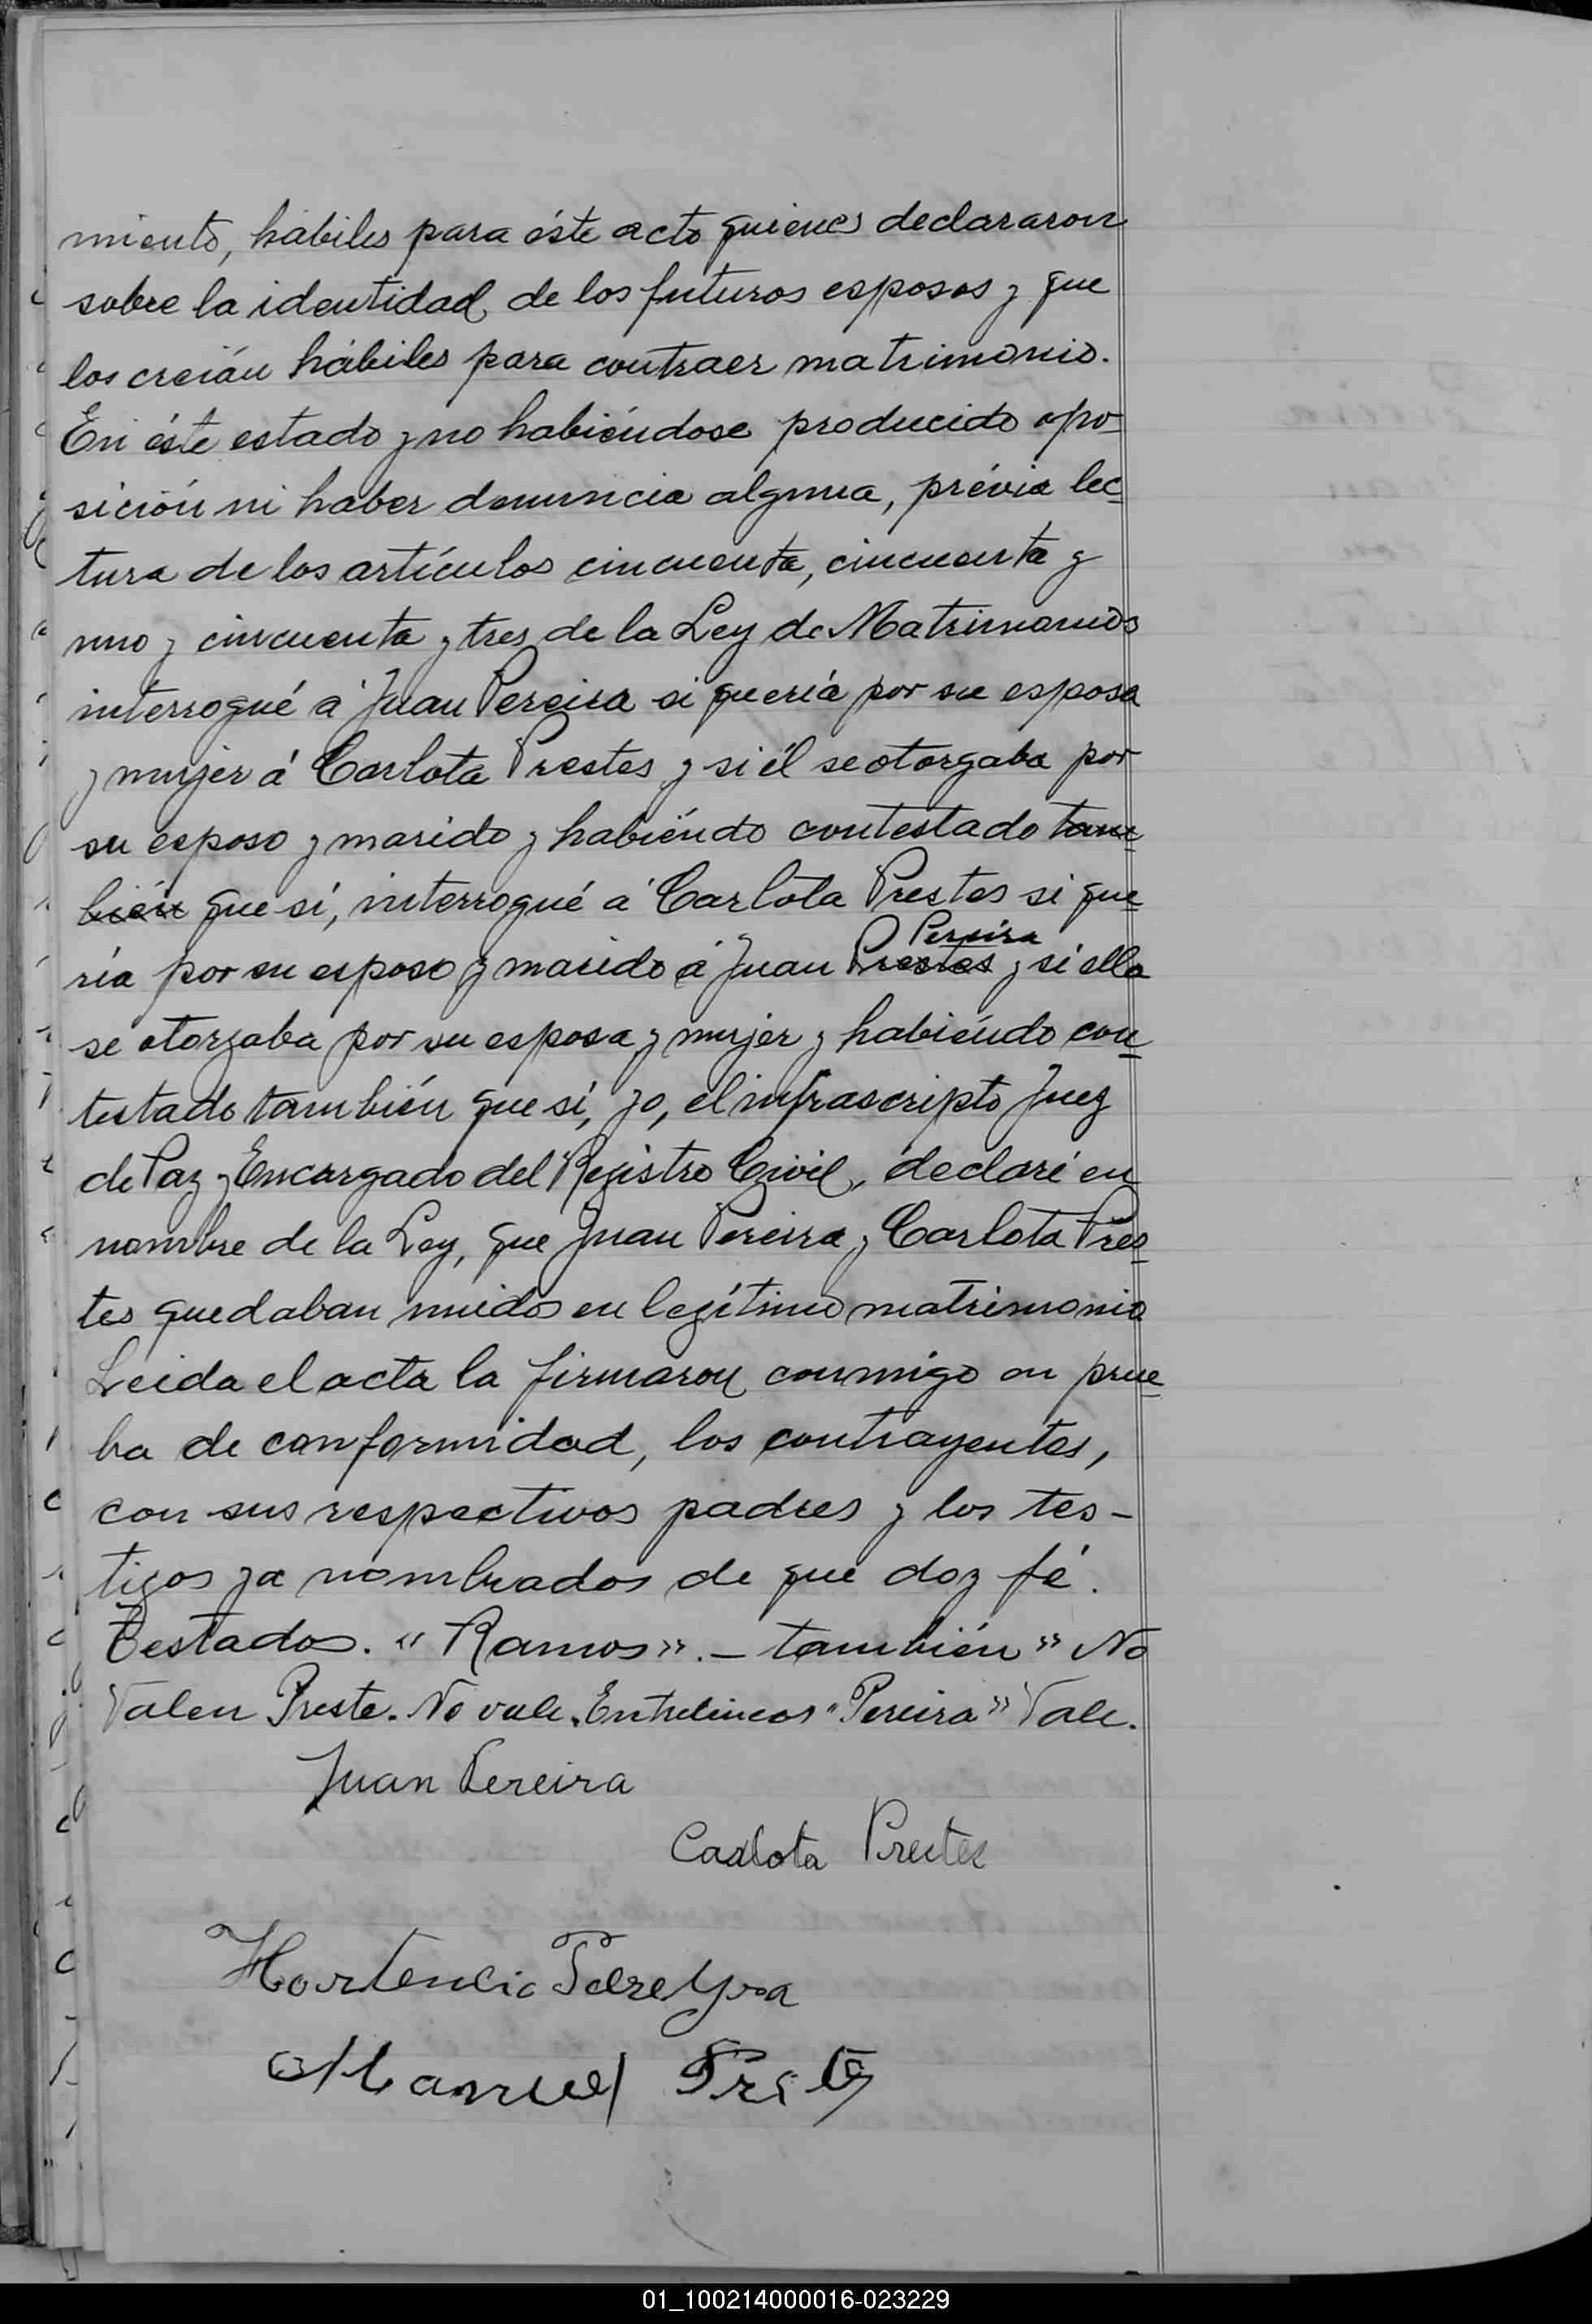 miento, hábiles para éste acto quienes declararon
sobre la identidad de los futuros esposos y que
los creián hábiles para contraer matrimonio.
En éste estado y no habiéndose producido opo-
sición ni haber denuncia alguna, prévia lec-
tura de los artículos cincuenta, cincuenta y
uno y cincuenta y tres de la Ley de Matrimonios
interrogué á Juan Pereira si quería por su esposa
y mujer á Carlota Prestes y si él se otorgaba por
su esposo y marido y habiéndo contestado tam-
bién que si, interrogué á Carlota Prestes si que-
Pereira
ría por su esposo y marido á Juan Prestes y si ella
se otorgaba por su esposa y mujer y habiéndo con-
testado también que si, yo, el infrascripto Juez
de Paz y Encargado del Registro Civil, declaré en
nombre de la Ley, que Juan Pereira y Carlota Pres-
tes quedaban unidos en legítimo matrimonio
Leida el acta la firmaron conmigo en prue-
ba de conformidad, los contrayentes,
con sus respectivos padres y los tes-
tigos ya nombrados de que doy fé.
Testados. "Ramos". - también" No
Valen Preste. No vale. Entrelineas "Pereira" Vale.
Juan Pereira
Carlota Prestes
Hortencio Pereyra
Manuel
01_100214000016-023229